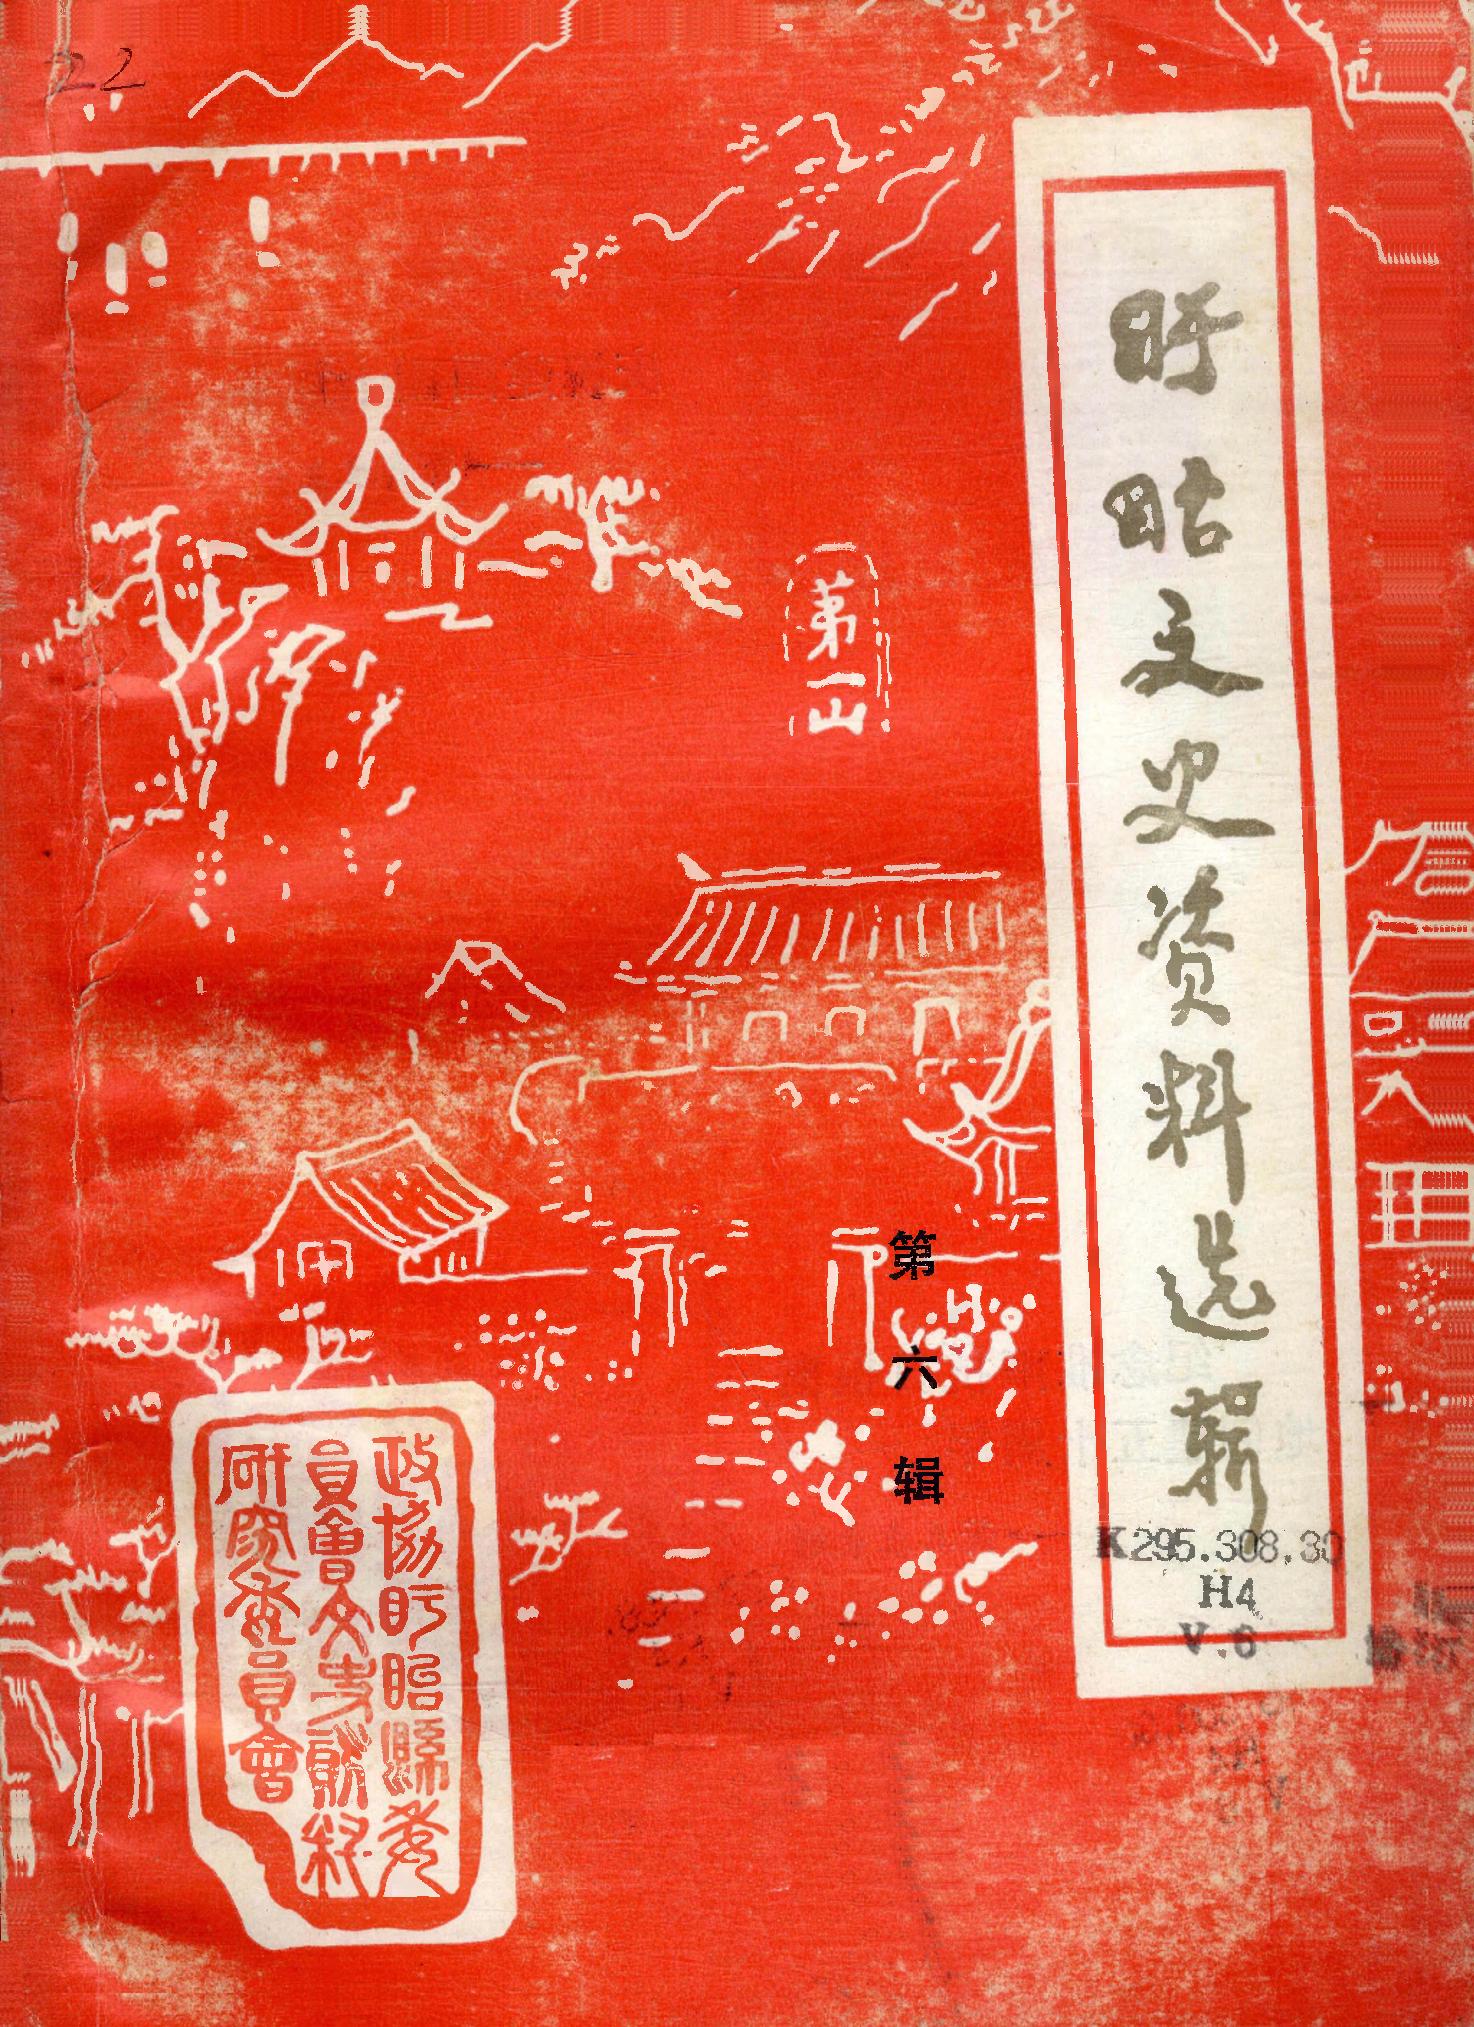 22
盱眙文史资料选辑
K295.308.30
H4
V.6
第一山
第六辑
政協盱眙縣委
員會文史資料
研究委員會